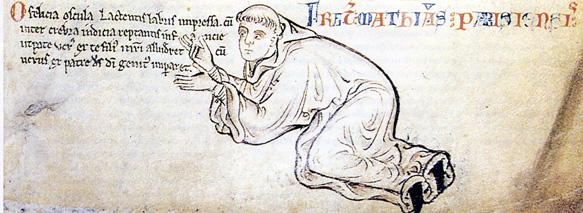 O felicia oscula Lactentis labiis impressa. cū
inter crebra indicia reptantis infancie
utpote ex te alluderet cū
verus ex patre imperaret
FRAT̄ MATHIAS PARISIENSIS